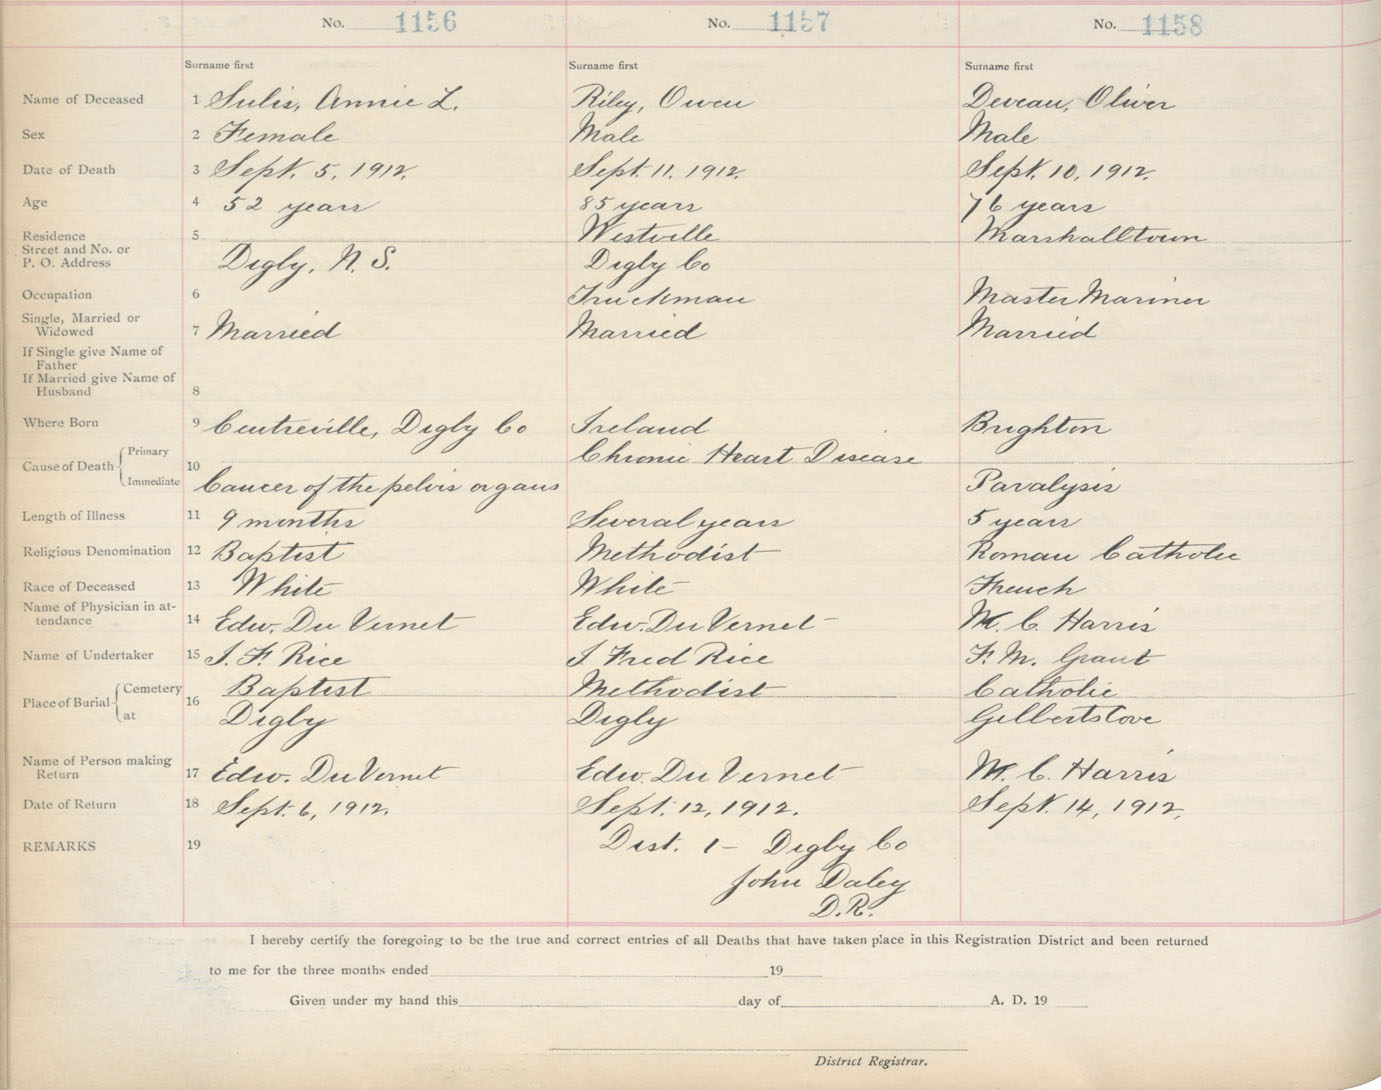 No. 1156 No. 1157 No. 1158
Surname first Surname first Surname first
Name of Deceased 1 Sulis, Annie L. Riley, Owen Deveau, Oliver
Sex 2 Female Male Male
Date of Death 3 Sept. 5, 1912. Sept. 11, 1912. Sept. 10, 1912.
Age 4 52 years 85 years 76 years
Residence 5 Westville Marshalltown
Street and No. or
P. O. Address Digby, N. S. Digby Co
Occupation 6 Truckman Master Mariner
Single, Married or
Widowed 7 Married Married Married
If Single give Name of
Father
If Married give Name of
Husband 8
Where Born 9 Centreville, Digby Co Ireland Brighton
Cause of Death Primary 10 Chronic Heart Disease
Immediate Cancer of the pelvis organs Paralysis
Length of Illness 11 9 months Several years 5 years
Religious Denomination 12 Baptist Methodist Roman Catholic
Race of Deceased 13 White White French
Name of Physician in at-
tendance 14 Edw. Du Vernet Edw. Du Vernet W. C. Harris
Name of Undertaker 15 J. F. Rice J. Fred Rice F. M. Grant
Place of Burial Cemetery 16 Baptist Methodist Catholic
at Digby Digby Gilbertscove
Name of Person making
Return 17 Edw. Du Vernet Edw. Du Vernet W. C. Harris
Date of Return 18 Sept. 6, 1912. Sept. 12, 1912. Sept. 14, 1912.
REMARKS 19 Dist. 1 - Digby Co
John Daley
D.R.
I hereby certify the foregoing to be the true and correct entries of all Deaths that have taken place in this Registration District and been returned
to me for the three months ended 19
Given under my hand this day of A. D. 19
District Registrar.